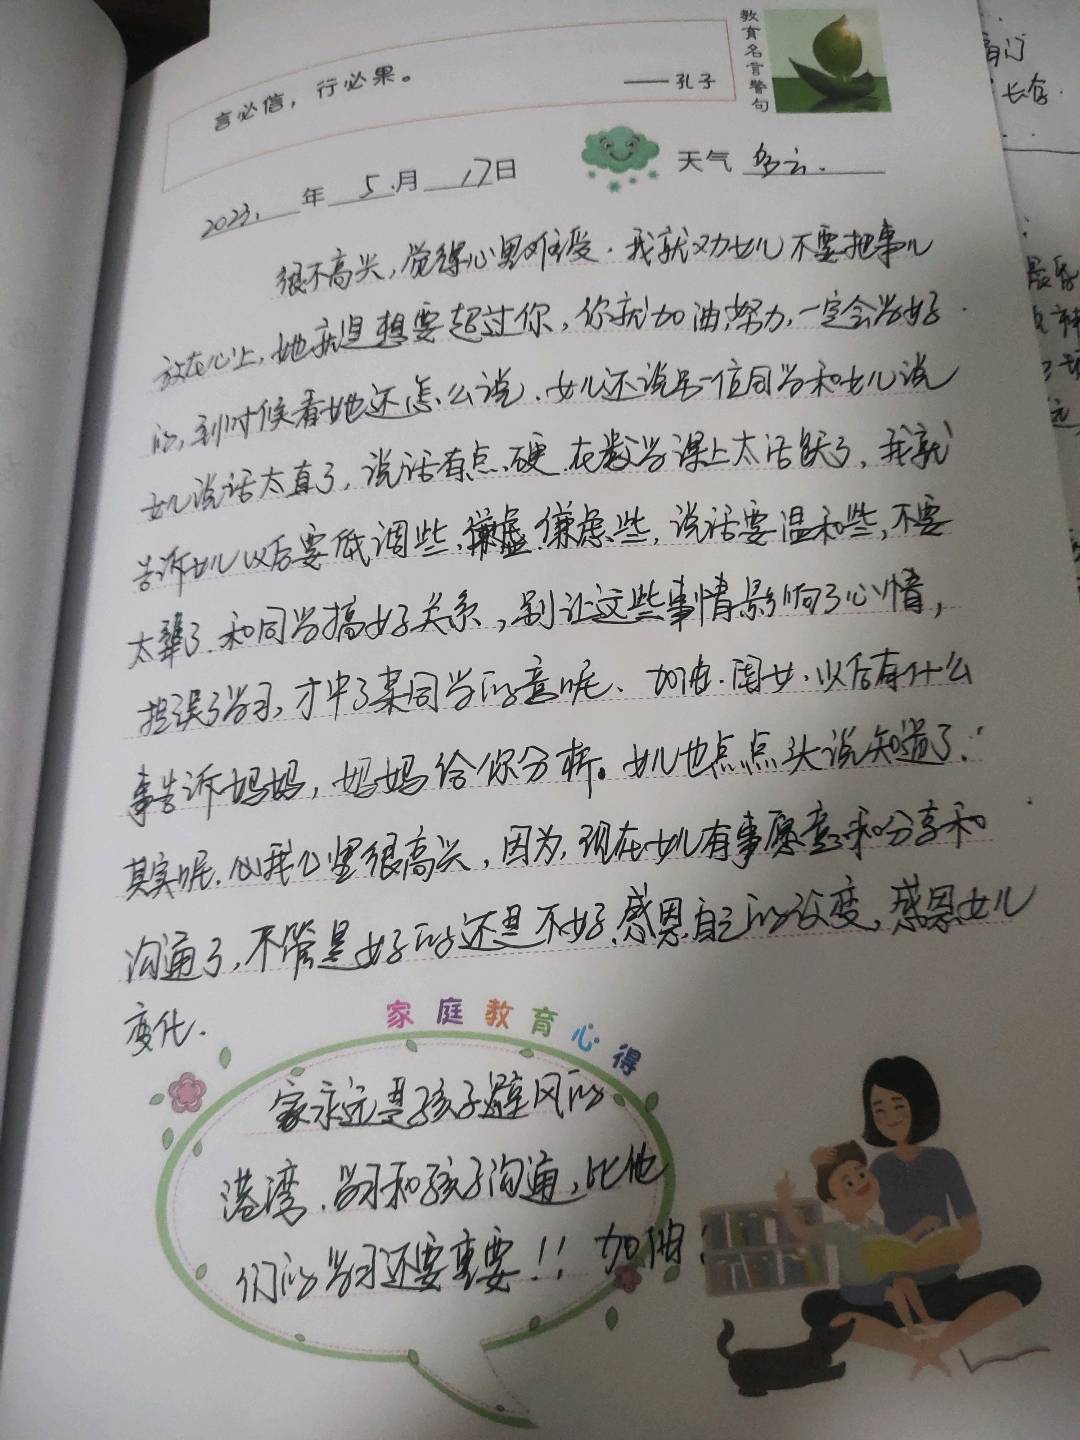 教育名言警句
言必信，行必果。
——孔子
2023.年5.月17日 天气 多云.
很不高兴，觉得心里难受.我就劝女儿不要把事儿
放在心上，她就是想要超过你，你就加油，努力，一定会学好
的，到时候看她还怎么说.女儿还说另一位同学和女儿说
女儿说话太直了，说话有点硬.在数学课上太活跃了，我就
告诉女儿以后要低调些，谦虚些，说话要温和些，不要
太犟了.和同学搞好关系，别让这些事情影响了心情，
担误了学习，才中了某同学的意呢、加油.闺女，以后有什么
事告诉妈妈，妈妈给你分析。女儿也点点头说知道了.
其实呢.我心里很高兴，因为，现在女儿有事愿意和分享和
沟通了，不管是好的还是不好，感恩自己的改变，感恩女儿
变化.
家庭教育心得
家永远是孩子避风的
港湾.学习和孩子沟通，比他
们的学习还要重要!! 加油!